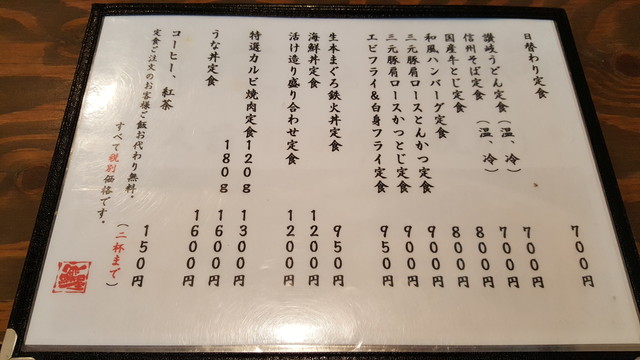 日替わり定食 700円
讃岐うどん定食(温、冷) 700円
信州そば定食(温、冷) 700円
国産牛とじ定食 800円
和風ハンバーグ定食 800円
三元豚肩ロースとんかつ定食 900円
三元豚肩ロースかつとじ定食 900円
エビフライ&白身フライ定食 950円
生本まぐろ鉄火丼定食 950円
海鮮丼定食 1200円
活け造り盛り合わせ定食 1200円
特選カルビ焼肉定食120g 1300円
180g 1600円
うな丼定食 1600円
コーヒー、紅茶 150円
定食ご注文のお客様ご飯お代わり無料。(二杯まで)
すべて税別価格です。